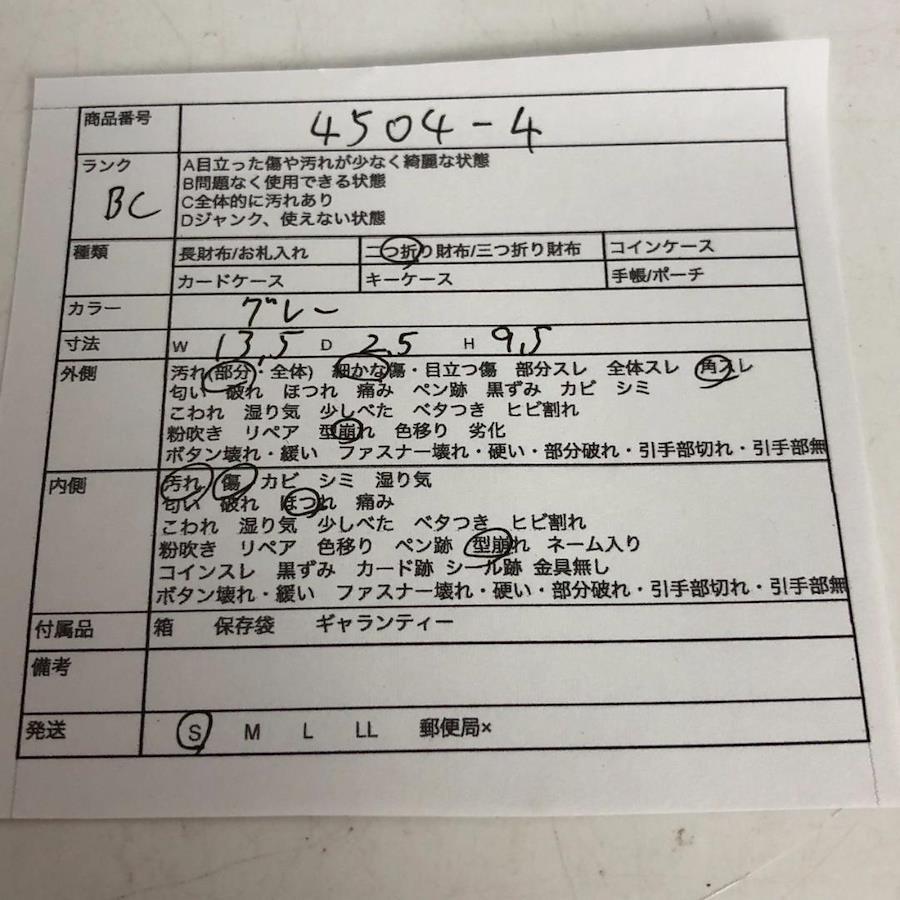 商品番号 4504-4
ランク BC
A目立った傷や汚れが少なく綺麗な状態
B問題なく使用できる状態
C全体的に汚れあり
Dジャンク、使えない状態
種類 長財布/お札入れ 二つ折り財布/三つ折り財布 コインケース
カードケース キーケース 手帳/ポーチ
カラー グレー
寸法 W 13,5 D 2,5 H 9,5
外側 汚れ(部分・全体) 細かな傷・目立つ傷 部分スレ 全体スレ 角スレ
匂い 破れ ほつれ 痛み ペン跡 黒ずみ カビ シミ
こわれ 湿り気 少しべた ベタつき ヒビ割れ
粉吹き リペア 型崩れ 色移り 劣化
ボタン壊れ・緩い ファスナー壊れ・硬い・部分破れ・引手部切れ・引手部無
内側 汚れ 傷 カビ シミ 湿り気
匂い 破れ ほつれ 痛み
こわれ 湿り気 少しべた ベタつき ヒビ割れ
粉吹き リペア 色移り ペン跡 型崩れ ネーム入り
コインスレ 黒ずみ カード跡 シール跡 金具無し
ボタン壊れ・緩い ファスナー壊れ・硬い・部分破れ・引手部切れ・引手部無
付属品 箱 保存袋 ギャランティー
備考
発送 S M L LL 郵便局×